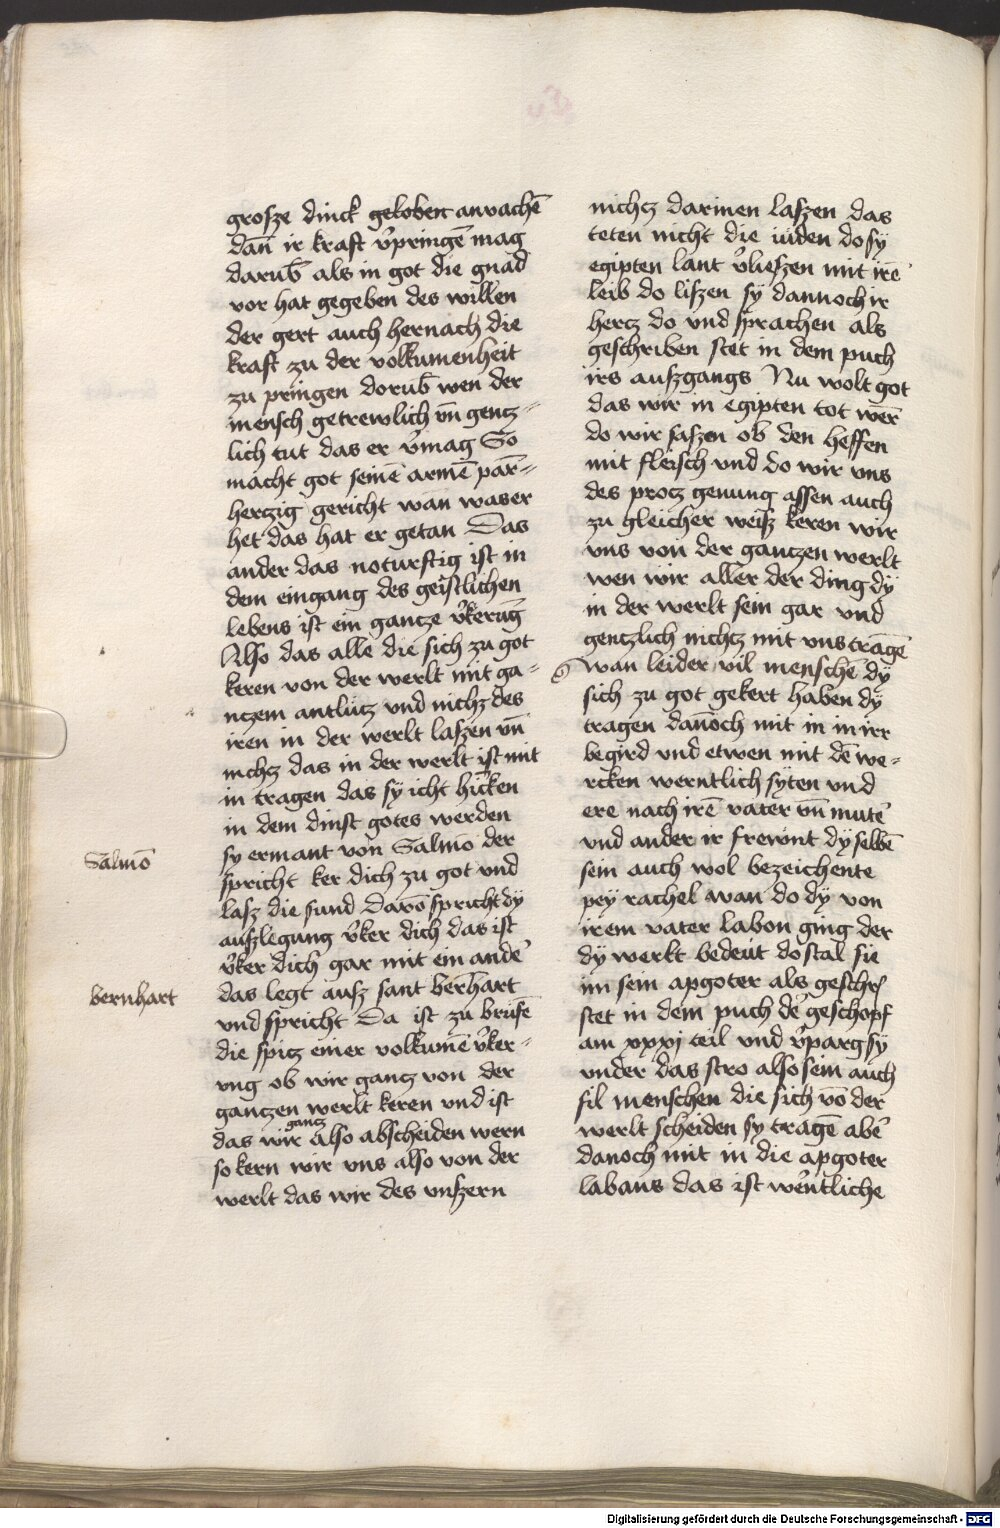 grosze dinck geloben anvachē
dan̄ ir kraft v̓pringē mag
darub̄ als in got die gnad
vor hat gegeben des willen
der gert auch hernach die
kraft zu der volkumenheit
zu pringen dorub̄ wen der
mensch getrewlich vn̄ gencz=
lich tut das er v̓mag So
macht got seinē armē par̄=
herczig gericht wan waser
het das hat er getan Das
ander das noturftig ist in
dem eingang des geistlichen
lebens ist ein gancze v̓kerūg
Also das alle die sich zu got
keren von der werlt mit ga=
nczem antlucz vnd nichz des
iren in der werlt laszen vn̄
nichcz das in der werlt ist mit
in tragen das sy icht hīcken
in dem dinst gotes werden
sy ermant von Salmō der
spricht ker dich zu got vnd
lasz die sund Davō spricht dy
auszlegung v̓ker dich das ist
v̓ker dich gar mit ein ande̓
das legt ausz sant bern̄hart
vnd spricht Da ist zu brufē
die spicz einer volkumē v̓ker=
ung ob wir gancz von der
ganczen werlt keren vnd ist
gancz
das wir also abscheiden wern
so kern wir vns also von der
werlt das wir des vnszern
Salmō
bernhart
nichcz darinen laszen das
teten nicht die iuden do sy
egipten lant v̓lieszen mit irē
leib do liszen sy dannoch ir
hercz do vnd sprachen als
geschriben stet in dem puch
irs auszgangs Nu wolt got
das wir in egipten tot wer̄
do wir saszen ob den heffen
mit fleisch vnd do wir vns
des procz genung assen auch
zu gleicher weisz keren wir
vns von der ganczen werlt
wen wir aller der ding dy
in der werlt sein gar vnd
genczlich nichcz mit vns tragē
wan leider vil menschē dy
sich zu got gekert haben dy
tragen dan̄och mit in in irr
begird vnd etwen mit dē we=
rcken werntlich syten vnd
ere nach irē vater vn̄ mute̓
vnd ander ir frewnt dy selbē
sein auch wol bezeichente
pey rachel wan do dy von
irem vater labon ging der
dy werlt bedeut do stal sie
im sein apgoter als geschrˢ
stet in dem puch de̓ geschopf
am xxxj teil vnd v̓parg sy
vnder das stro also sein auch
fil menschen die sich vō der
werlt scheiden sy tragē abe̓
danoch mit in die apgoter
labans das ist we̓ntliche
Digitalisierung gefördert durch die Deutsche Forschungsgemeinschaft - DFG